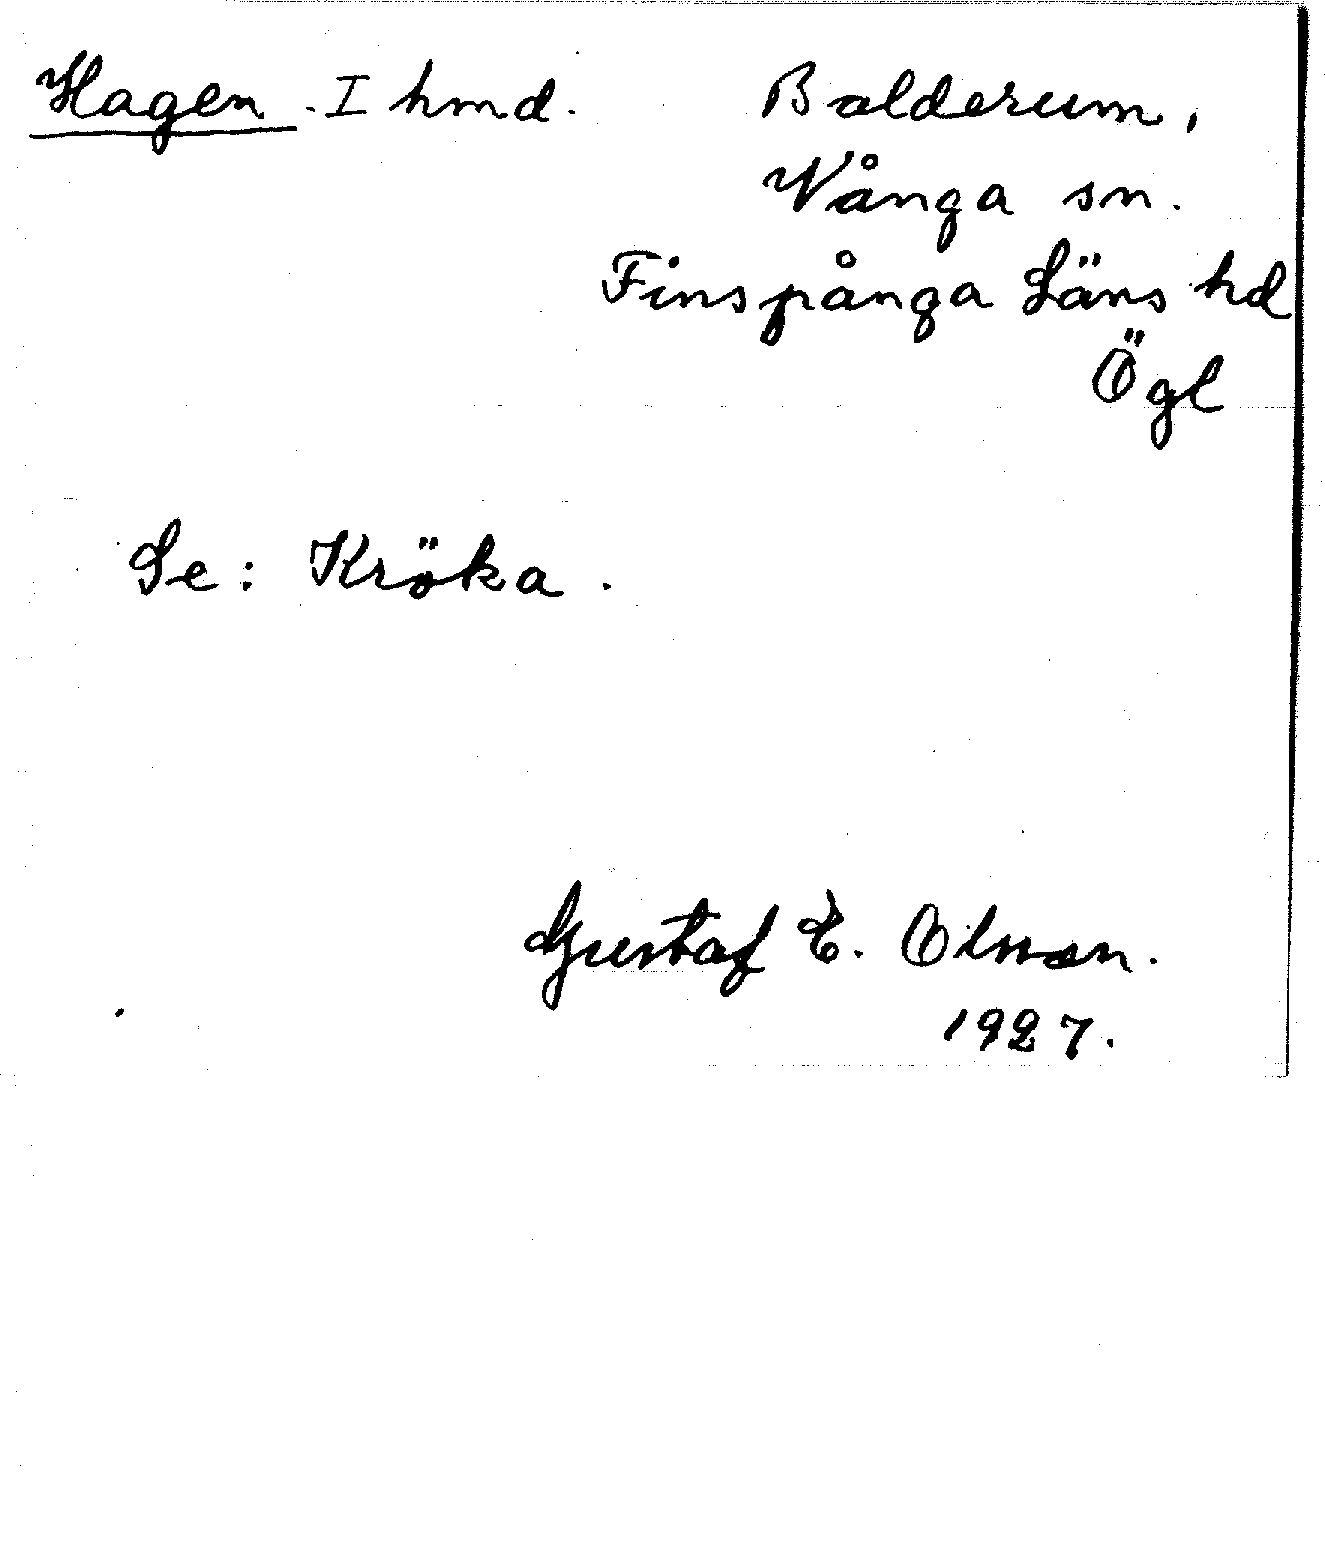 Hagen. I hmd. Balderum,
Vånga sn.
Finspånga Läns hd
Ögl
Se: Kröka.
Gustaf E. Olsson.
1927.